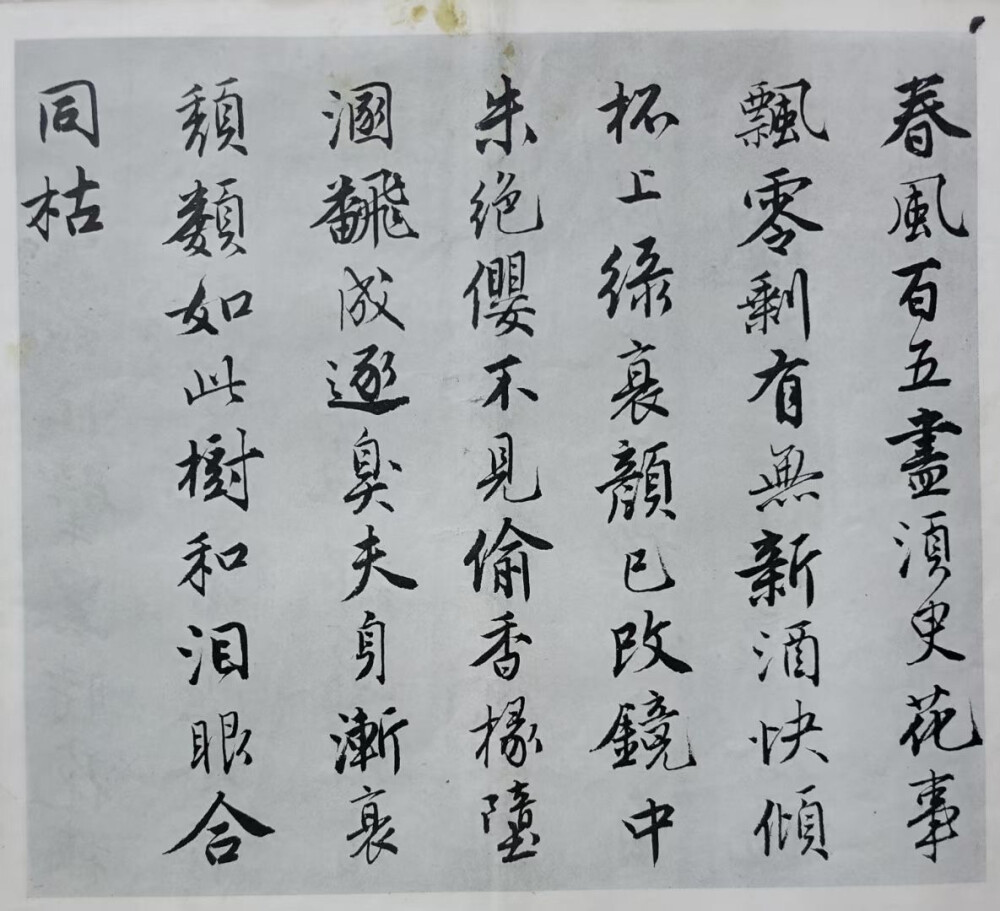 春風百五盡須臾花事
飄零剩有無新酒快傾
杯上綠衰顏已改鏡中
朱絕纓不見偷香掾墮
溷飜成逐臭夫身漸衰
頹類如此樹和淚眼合
同枯